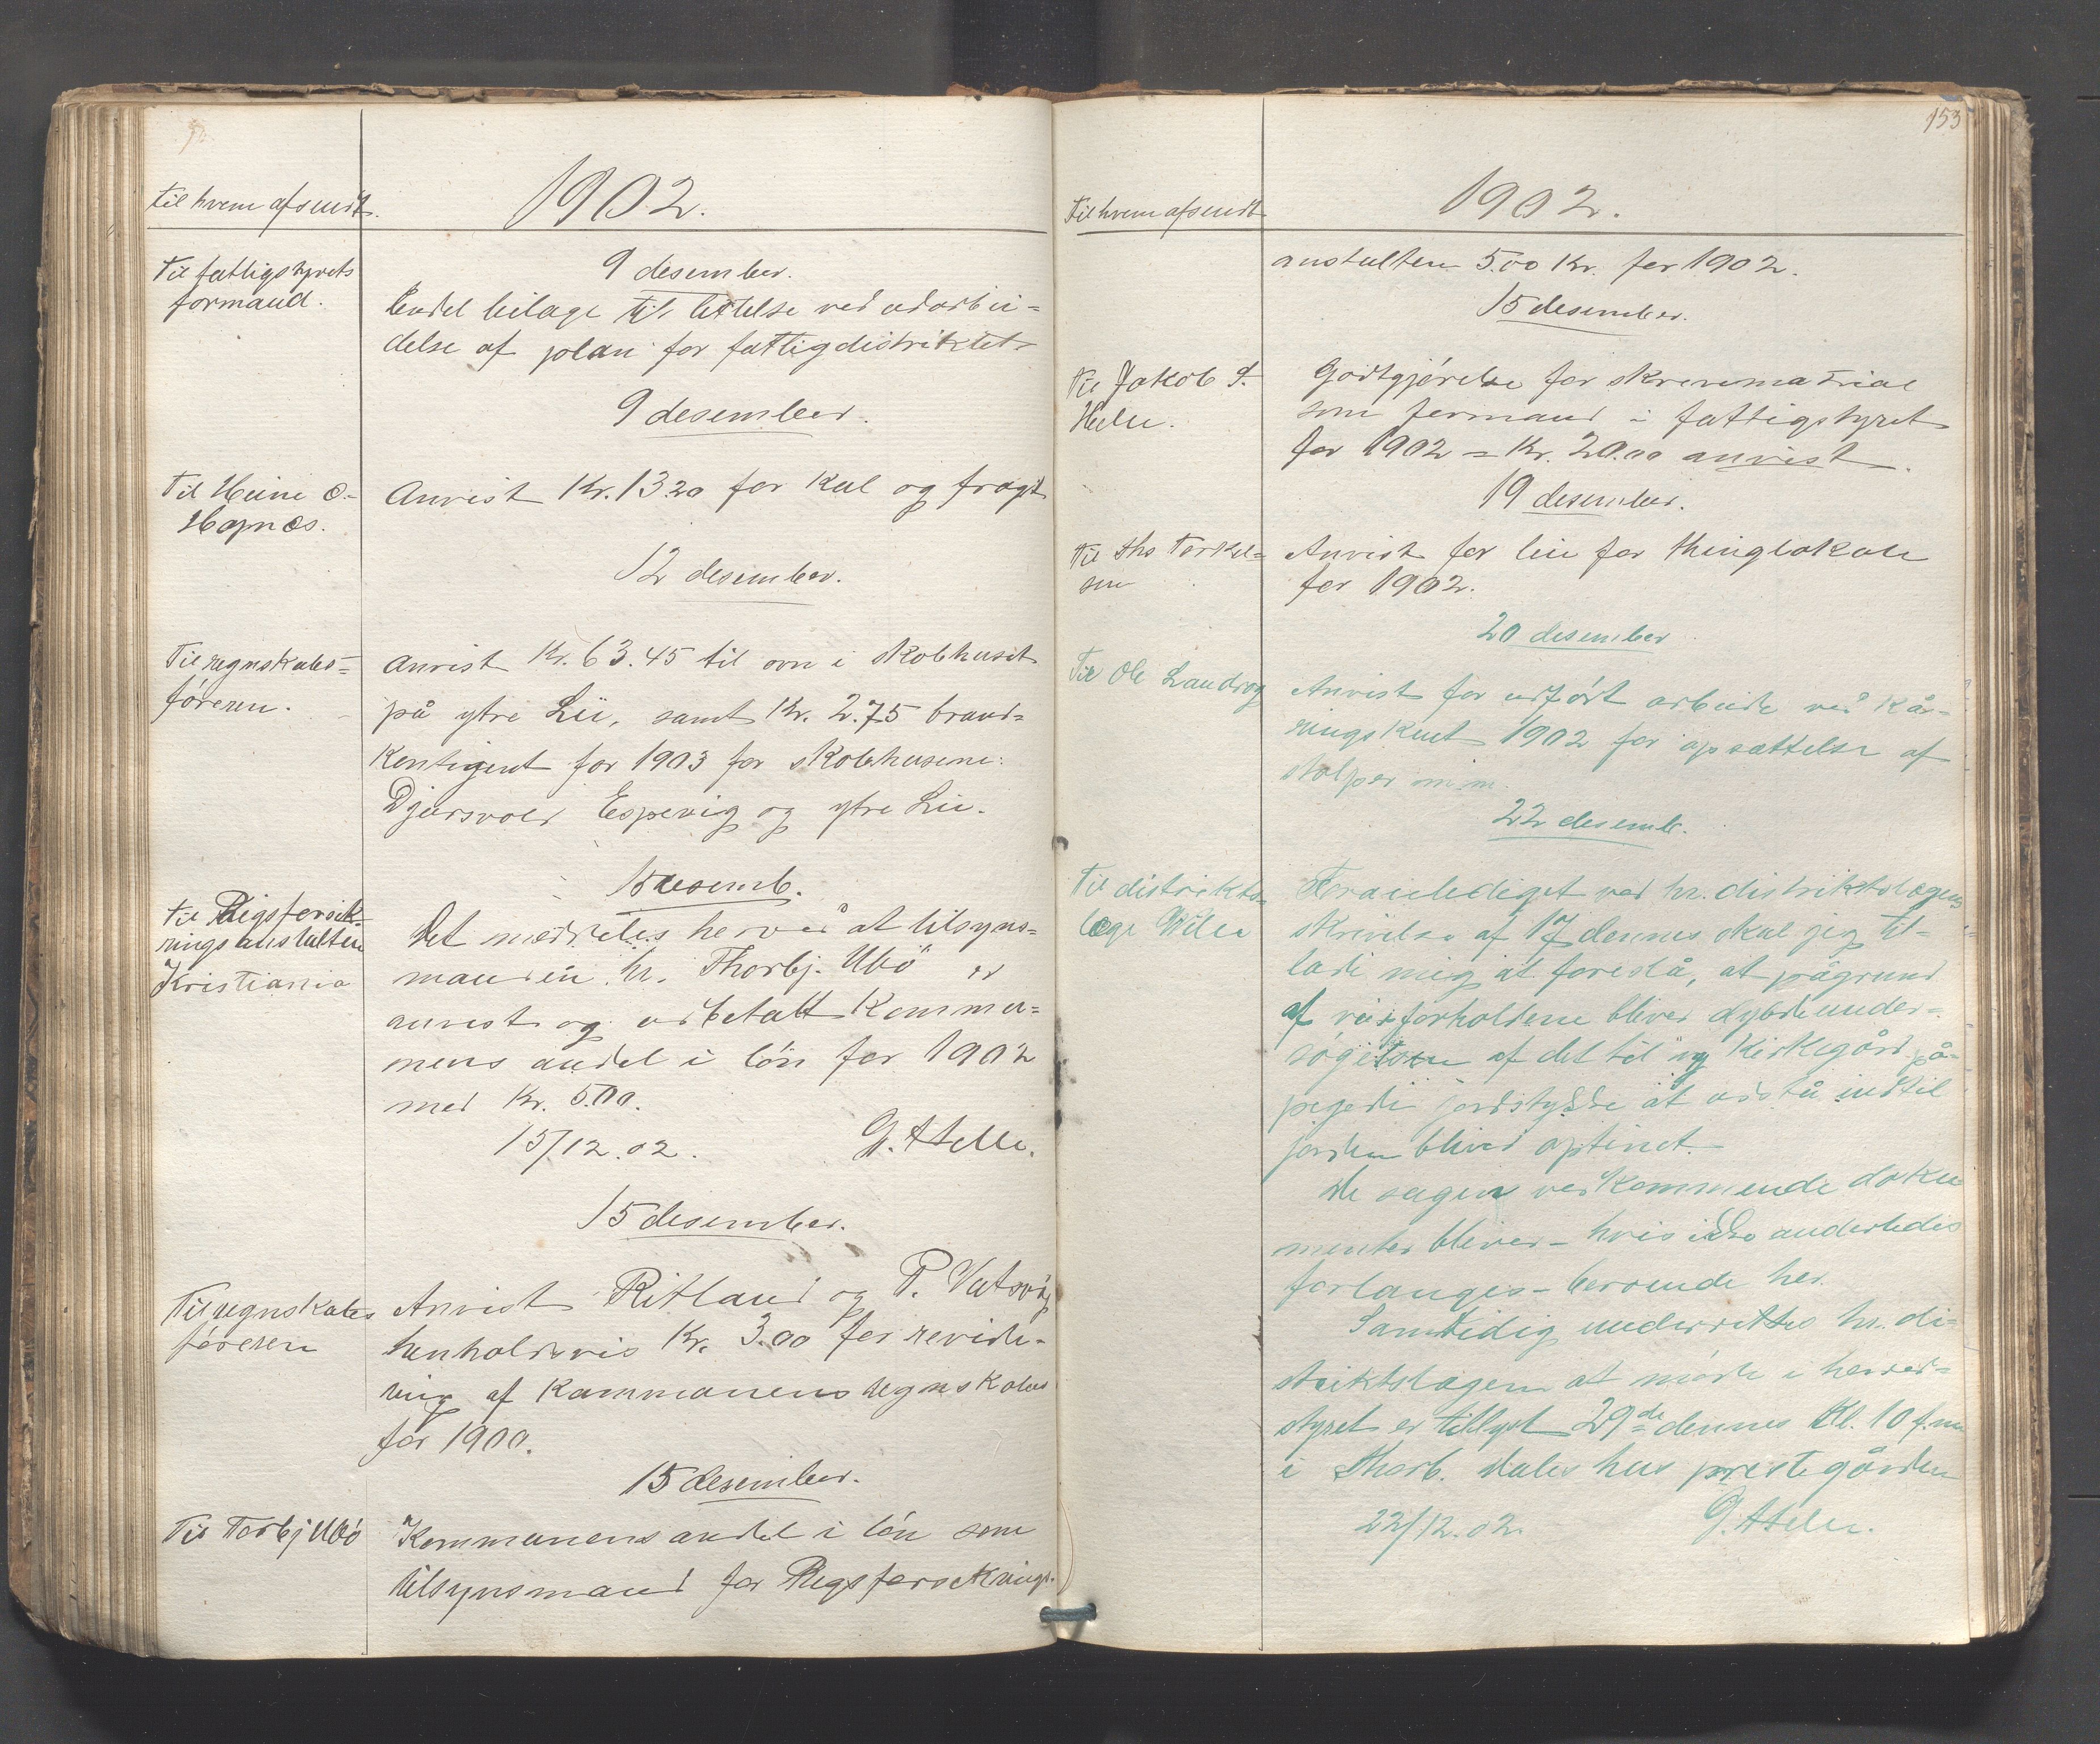 til hvem afsendt.
1902.
Til fattigstyrets
formand.
9 desember.
Endel bilage til lettelse ved udarbei=
delse af plan for fattigdistriktet
9 desember.
Til Heine O.
Hapnæs.
Anvist Kr. 13.20 for kul og fragt
12 desember.
Til regnskabs=
föreren.
Anvist Kr. 63.45 til ovn i skolehuset
på ytre Lii, samt Kr. 2.75 brand=
kontigent for 1903 for skolehusene:
Djursvold Espevig og ytre Lii.
15 desemb.
Til Rigsforsik=
ringsanstalten
Kristiania
Det meddeles herved at tilsyns=
manden hr. Thorbj. Ubö er
anvist og udbetalt Kommu=
nens andel i lön for 1902
med Kr. 5.00.
15/12.02.
15 desember.
Til regnskabs
föreren
Anvist Ritland og P. Vatsvåg
henholdsvis Kr. 3.00 for revide=
ring af Kommunens regnskaber
for 1900.
15 desember.
Til Torbj Ubö
Kommunens andel i lön som
tilsynsmand for Rigsforsikrings
153
Til hvem afsendt
1902.
anstalten 5.00 Kr. for 1902.
15 desember.
Til Jakob
Godtgjörelse for skrivematrial
som formand i fattigstyret
for 1902 = Kr. 20.00 anvist.
19 desember.
Til Ths Torkel=
sen
Anvist for leie for thinglokale
for 1902.
20 desember
Til Ole Landråg
Anvist for udfört arbeide ved kå=
1902 for opsættelse af
stolper m.m.
22 desemb.
Til distrikts=
læge
Foranlediget ved hr. distriktslægens
skrivelse af 17 dennes skal jeg til=
lade mig at foreslå, at pågrund
af veirforholdene bliver dybdeunder=
sögelsen af det til ny kirkegård på=
pegede jordstykke at udstå indtil
jorden bliver optinet.
De sagen vedkommende doku
menter bliver - hvis ikke anderledes
forlanges - beroende her.
Samtidig underrettes hr. di=
striktslægen at möde i herred=
styret er tillyst 29de dennes Kl. 10 f.m
i Thorb. Dales hus prestegården
22/12.02.